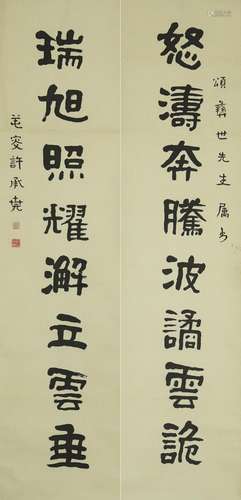 頌彝世先生屬書
怒濤奔騰波譎雲詭
瑞旭照耀澥立雲垂
芚叜許承堯